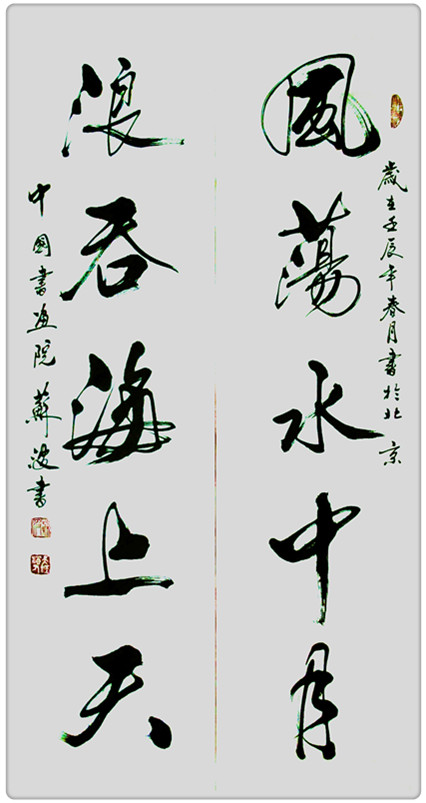 歲在壬辰年春月書於北京
風蕩水中月
浪吞海上天
中國書畫院蘇波書